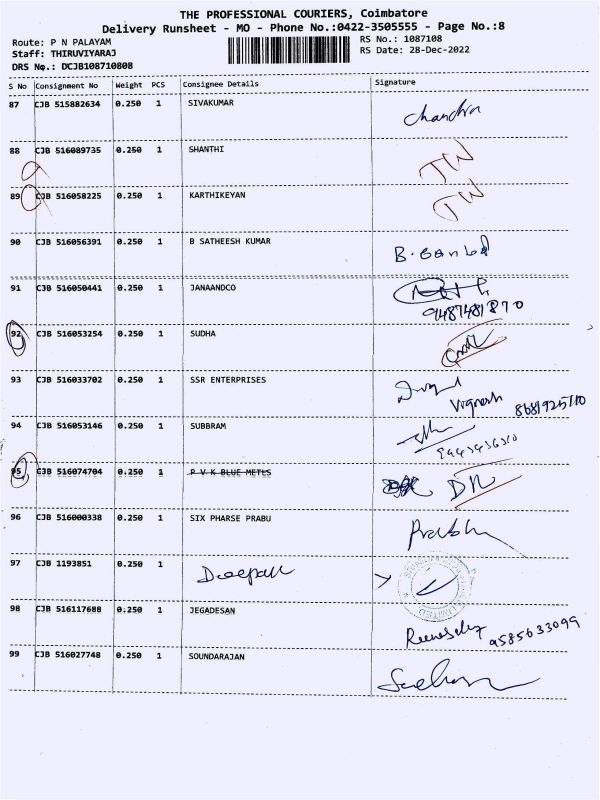 THE PROFESSIONAL COURIERS, Coimbatore
Delivery Runsheet - MO - Phone No.:0422-3505555 - Page No.:8
Route: P N PALAYAM
Staff: THIRUVIYARAJ
DRS No.: DCJB108710808
RS No.: 1087108
RS Date: 28-Dec-2022
S No Consignment No Weight PCS Consignee Details Signature
87 CJB 515882634 0.250 1 SIVAKUMAR Chandra
88 CJB 516089735 0.250 1 SHANTHI
89 CJB 516058225 0.250 1 KARTHIKEYAN
90 CJB 516056391 0.250 1 B SATHEESH KUMAR
91 CJB 516050441 0.250 1 JANAANDCO
9487481870
92 CJB 516053254 0.250 1 SUDHA
93 CJB 516033702 0.250 1 SSR ENTERPRISES
Vignesh 8681925110
94 CJB 516053146 0.250 1 SUBBRAM
95 CJB 516074704 0.250 1 P V K BLUE METLS
96 CJB 516000338 0.250 1 SIX PHARSE PRABU Prabhu
97 CJB 1193851 0.250 1 Deepak
98 CJB 516117688 0.250 1 JEGADESAN
9585633099
99 CJB 516027748 0.250 1 SOUNDARAJAN